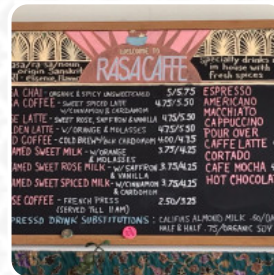 WELCOME TO
RASA CAFFE
rasa/ra·sa/noun
origin Sanskrit
essence, flavor
Specialty drinks
in house with
fresh spices
A CHAI - ORGANIC & SPICY UNSWEETENED 5/5.75
A COFFEE - SWEET SPICED LATE 4.75/5.50
W/CINNAMON & CARDAMOM
E LATTE - SWEET ROSE, SAFFRON & VANILLA 4.75/5.50
DEN LATTE - W/ORANGE & MOLASSES 4.75/5.50
D COFFEE - COLD BREW W/ CARDAMOM 4.00/4.75
AMED SWEET MILK - W/ORANGE 3.75/4.25
& MOLASSES
AMED SWEET ROSE MILK - W/SAFFRON 3.75/4.25
& VANILLA
AMED SWEET SPICED MILK - W/CINNAMON 3.75/4.25
& CARDAMOM
SE COFFEE - FRENCH PRESS 2.50/3.25
(SERVED TILL 11AM)
ESPRESSO
AMERICANO
MACCHIATO
CAPPUCCINO
POUR OVER
CAFFE LATTE
CORTADO
CAFE MOCHA
HOT CHOCOLAT
PRESSO DRINK SUBSTITUTIONS : CALIFIAS ALMOND MILK .80/
HALF & HALF .75/ORGANIC SOY